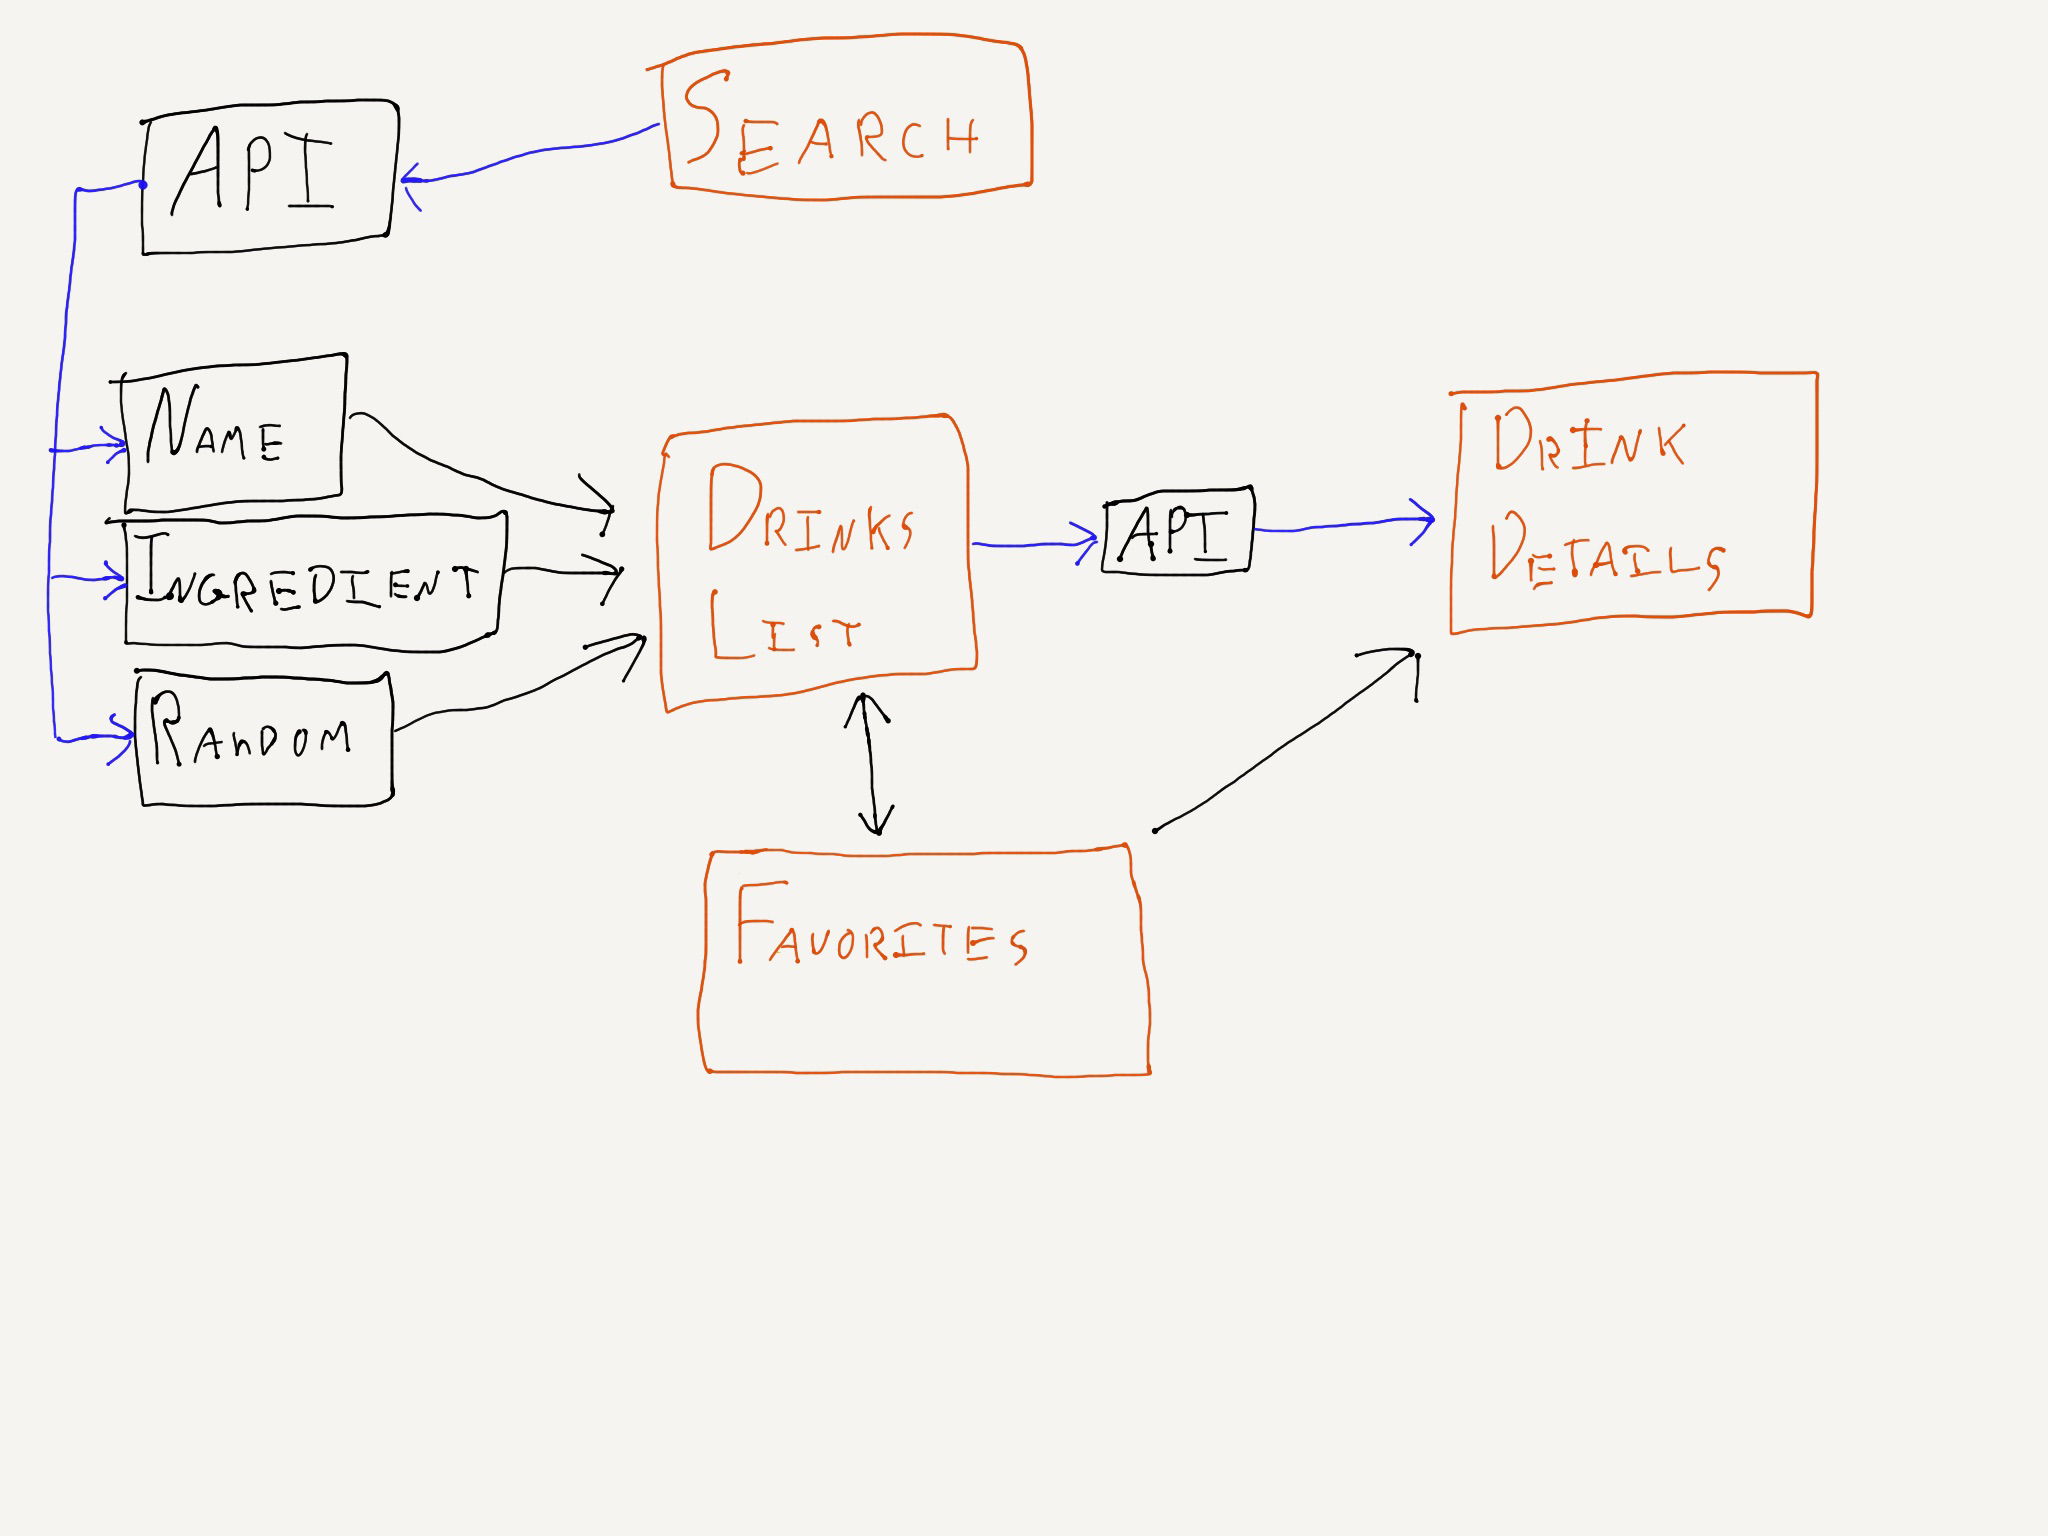 SEARCH
API
NAME
INGREDIENT
RANDOM
DRINKS
LIST
API
DRINK
DETAILS
FAVORITES